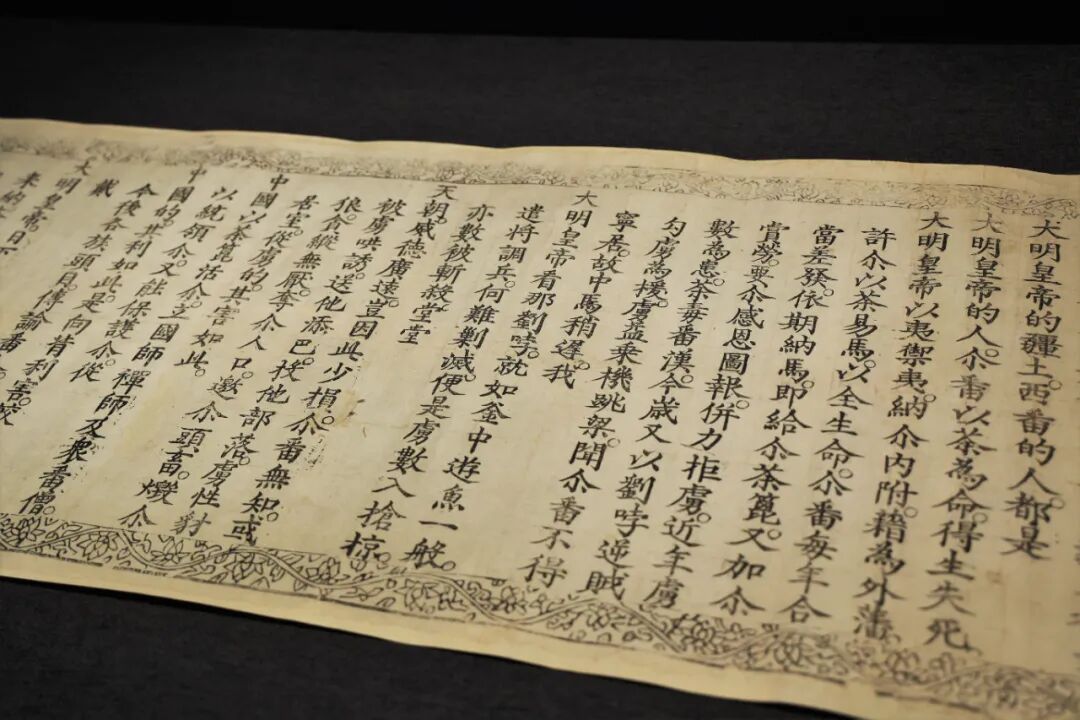 大明皇帝的疆土。西番的人。都是
大明皇帝的人。尒番以茶為命。得生失死
大明皇帝以夷禦夷。納尒內附。藉為外藩。
許尒以茶易馬。以全生命。尒番每年合
當差發。依期納馬。即給尒茶篦。又加尒
賞勞。要尒感恩圖報。併力拒虜。近年虜
數為患。荼毒番漢。今歲又以劉哱逆賊
勾虜為援。虜益乘機跳梁。聞尒番不得
寧居。故中馬稍遲。我
大明皇帝看那劉哱。就如釜中遊魚一般。
遣將調兵。何難剿滅。便是虜數入搶掠。
亦數被斬殺。堂堂
天朝。威德廣遠。豈因此少損。尒番無知。或
被虜哄誘。送他添巴。投他部落。虜性豺
狼。貪縱無厭。拿尒人口。邀尒頭畜。燬尒
居室。從虜的。其害如此。
中國以茶篦活尒。立國師禪師及眾番僧。
以統領尒。又能保護尒。從
中國的。其利如此。是向背利害。較
今後各族頭目。傳諭番
戴
大明皇帝。日
來納